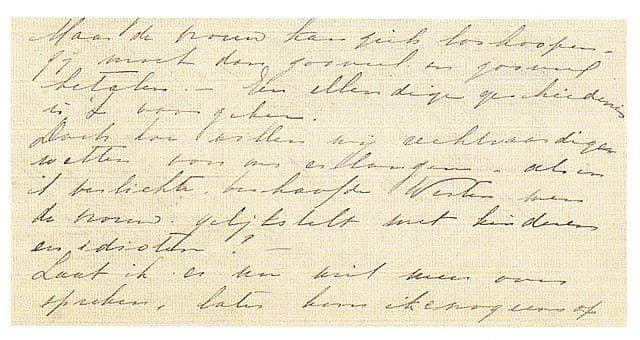 Maar de vrouw kan zich loskoopen –
zij moet dan zooveel en zooveel
betalen. – Een ellendige geschiedenis
is 't voor
Doch hoe willen wij rechtvaardiger
wetten voor ons erlangen, als in
't verlichte, beschaafde Westen men
de vrouw gelijkstelt met kinderen
en idioten? –
Laat ik er nu niet meer over
spreken, later kom ik er nog eens op